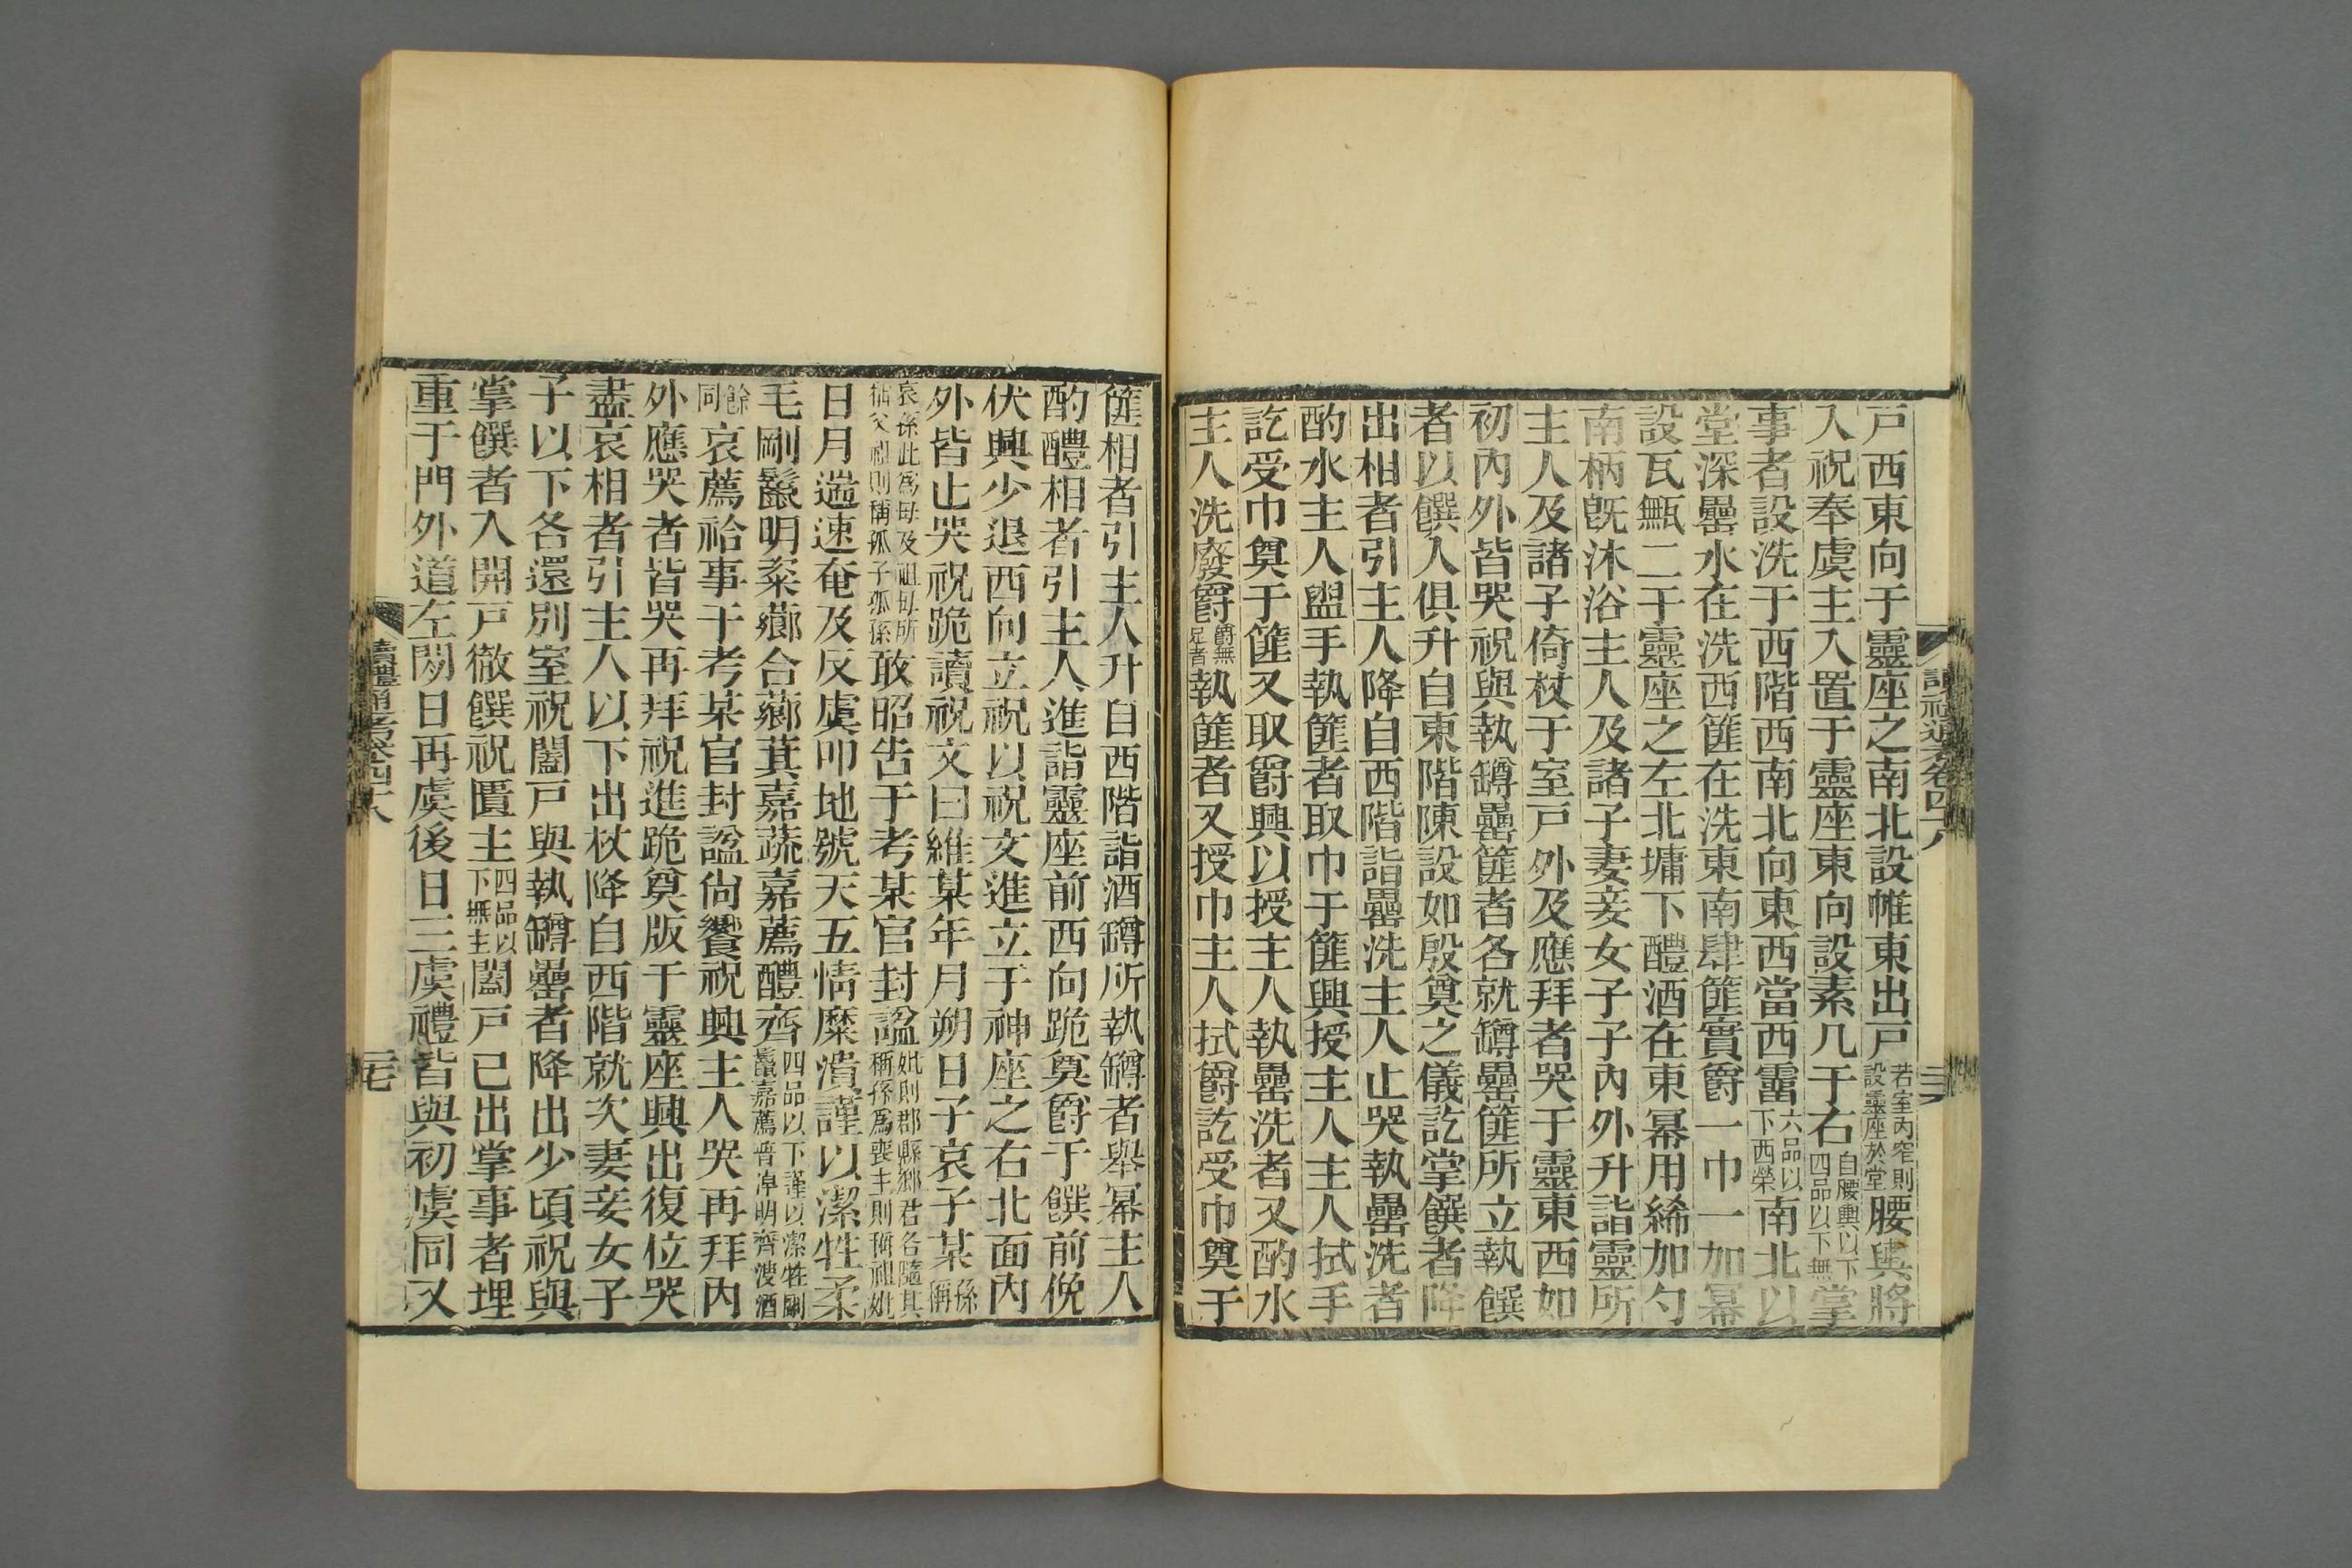 戸西東向于靈座之南北設帷東出戸若室內窄則設靈座於堂腰輿將
入祝奉虞主入置于靈座東向設素几于右自腰輿以下四品以下無掌
事者設洗于西階西南北向東西當西霤六品以下西榮南北以
堂深罍水在洗西篚在洗東南肆篚實爵一巾一加冪
設瓦甒二于靈座之左北墉下醴酒在東冪用綌加勺
南柄旣沐浴主人及諸子妻妾女子子內外升詣靈所
主人及諸子倚杖于室戸外及應拜者哭于靈東西如
初內外皆哭祝與執罇罍篚者各就罇罍篚所立執饌
者以饌入俱升自東階陳設如殷奠之儀訖掌饌者降
出相者引主人降自西階詣罍洗主人止哭執罍洗者
酌水主人盥手執篚者取巾于篚興授主人主人拭手
訖受巾奠于篚又取爵興以授主人執罍洗者又酌水
主人洗廢爵爵無足者執篚者又授巾主人拭爵訖受巾奠于
篚相者引主人升自西階詣酒罇所執罇者舉冪主人
酌醴相者引主人進詣靈座前西向跪奠爵于饌前俛
伏興少退西向立祝以祝文進立于神座之右北面內
外皆止哭祝跪讀祝文曰維某年月朔日子哀子某孫稱
哀孫此爲母及祖母所稱父祖則稱孤子孤孫敢昭告于考某官封諡妣則郡縣鄉君各隨其稱孫爲喪主則稱祖妣
日月遄速奄及反虞叩地號天五情糜潰謹以潔牲柔
毛剛鬣明粢薌合薌萁嘉蔬嘉薦醴齊四品以下謹以潔牲剛鬣嘉薦普淖明齊溲酒
餘同哀薦祫事于考某官封諡尙饗祝興主人哭再拜內
外應哭者皆哭再拜祝進跪奠版于靈座興出復位哭
盡哀相者引主人以下出杖降自西階就次妻妾女子
子以下各還別室祝闔戸與執罇罍者降出少頃祝與
掌饌者入開戸徹饌祝匱主四品以下無主闔戸已出掌事者埋
重于門外道左閒日再虞後日三虞禮皆與初虞同又
讀禮通考卷四十八
二六
讀禮通考卷四十八
二七